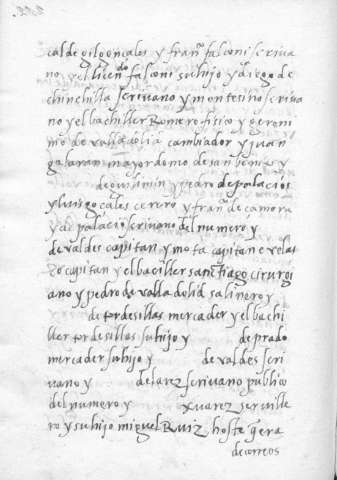 calde gil gonçales y fran.co falconi scriva
no y el licen.do falconi su hijo y diego de
chinchilla scrivano y montesino scriva
no y el bachiller Romero fisico y geroni
mo de valladolid cambiador y juan
galaran mayordomo de san
de y pedro de palacios
y luis gonçales cerero y fran.co de çamora
y de palacio scrivano del numero y
de valdes capitan y mota capitan e velas
co capitan y el baciller sanctiago cirurgi
ano y pedro de valladolid salinero y
de tordesillas mercader y el bachi
ller tordesillas su hijo y de prado
mercader su hijo y de valdes scri
vano y scrivano publico
del numero y xuarez
ro y su hijo miguel Ruiz hoste q era
de correos